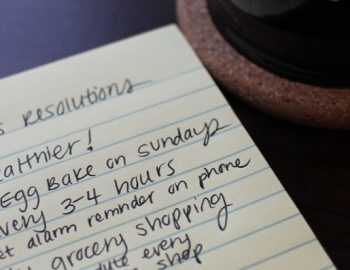 resolutions
althier!
Egg Bake on sundays
very 3-4 hours
et alarm reminder on phone
grocery shopping
every
shop